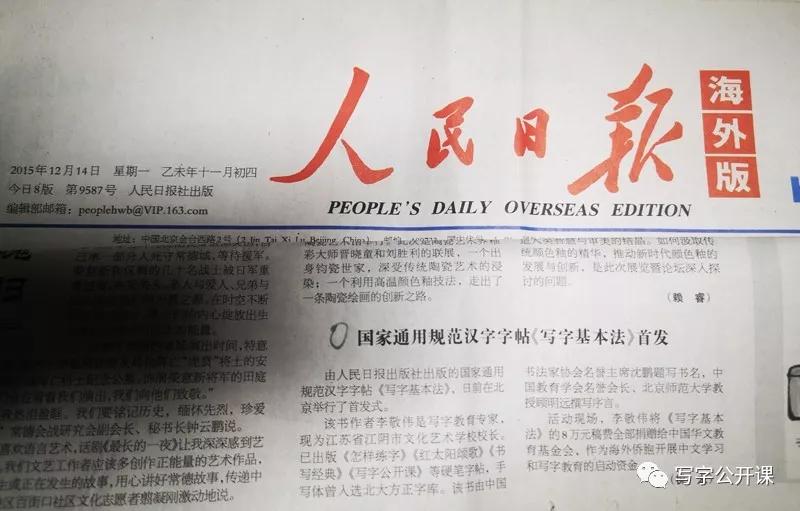 人民日报
海外版
2015年12月14日 星期一 乙未年十一月初四
今日8版 第9587号 人民日报社出版
编辑部邮箱：peoplehwb@VIP.163.com
PEOPLE'S DAILY OVERSEAS EDITION
地址：中国北京金台西路2号
已率一部分人死守常德城，等待援军。
在时空不断
内心绽放出生
将士的安
我们向他们致敬。”
我们要铭记历史，缅怀先烈，珍爱
常德会战研究会副会长、秘书长钟云鹏说。
喜欢语言艺术，话剧《最长的一夜》让我深深感到艺
我们文艺工作者应该多创作正能量的艺术作品，
生或正在发生的故事，用心讲好常德故事，传递中
区百街口社区文化志愿者翦凝刚激动地说。
彩大师晋晓童和刘胜利的联展，一个出
身钧瓷世家，深受传统陶瓷艺术的浸
染；一个利用高温颜色釉技法，走出了
一条陶瓷绘画的创新之路。
统颜色釉的精华，推动新时代颜色釉的
发展与创新，是此次展览暨论坛深入探
讨的问题。
（赖 睿）
国家通用规范汉字字帖《写字基本法》首发
由人民日报出版社出版的国家通用
规范汉字字帖《写字基本法》，日前在北
京举行了首发式。
该书作者李敬伟是写字教育专家，
现为江苏省江阴市文化艺术学校校长。
已出版《怎样练字》《红太阳颂歌》《书
写经典》《写字公开课》等硬笔字帖，手
写体曾入选北大方正字库。该书由中国
书法家协会名誉主席沈鹏题写书名，中
国教育学会名誉会长、北京师范大学教
授顾明远撰写序言。
活动现场，李敬伟将《写字基本
法》的8万元稿费全部捐赠给中国华文教
育基金会，作为海外侨胞开展中文学习
和写字教育的启动资金。
写字公开课